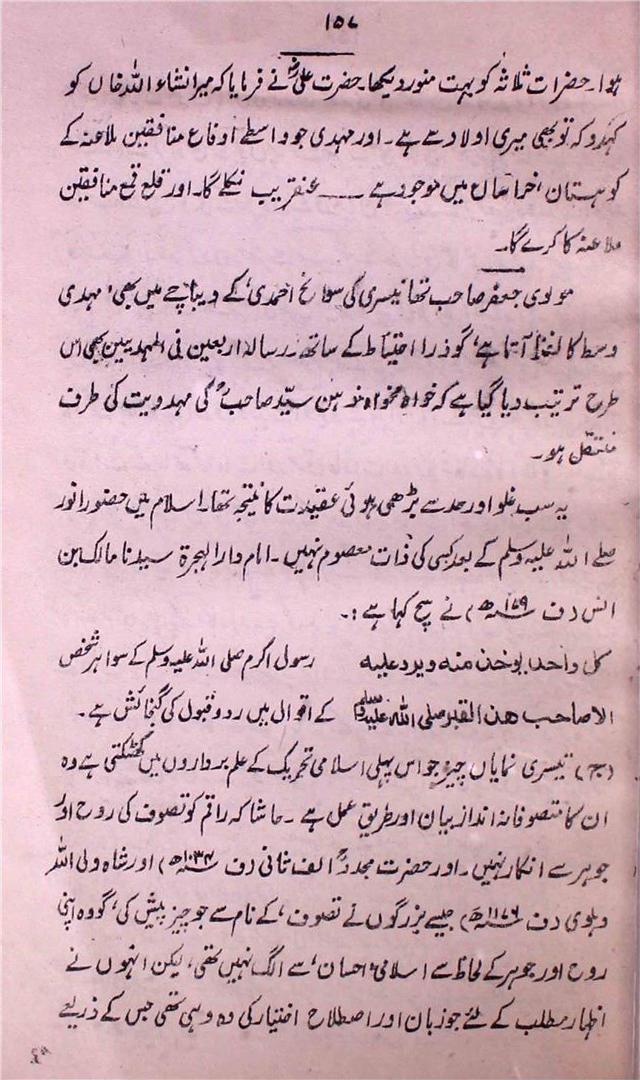 ۱۵۷
ہوا۔ حضرات ثلاثہ کو بہت منور دیکھا۔ حضرت علیؓ نے فرمایا کہ میر انشاء اللہ خاں کو
کہدو کہ تو بھی میری اولاد سے ہے۔ اور مہدی جو واسطے اوفاع منافقین ملاعنہ کے
کوہستان، خراسان میں موجود ہے ــــ عنقریب نکلے گا۔ اور قلع قمع منافقین
ملاعنہ کا کرے گا۔
مولوی جعفر صاحب تھانیسری کی سوانح احمدی، کے دیباچے میں بھی، مہدی
وسط کا لفظ آتا ہے، گو ذرا احتیاط کے ساتھ۔ رسالہ اربعین فی المہدیین بھی اس
طرح ترتیب دیا گیا ہے کہ خواہ مخواہ ذہن سیّد صاحبؒ کی مہدویت کی طرف
منتقل ہو۔
یہ سب غلو اور حد سے بڑھی ہوئی عقیدت کا نتیجہ تھا۔ اسلام میں حضور انور
صلے اللہ علیہ وسلم کے بعد کسی کی ذات معصوم نہیں۔ امام دار الہجرۃ سیدنا مالک بن
انس (ف ۱۷۹ھ) نے سچ کہا ہے :۔
کل واحد یوخذ منہ ویرد علیہ رسول اکرم صلی اللہ علیہ وسلم کے سوا ہر شخص
الا صاحب ھذ القبر صلی اللہ علیہ وسلم کے اقوال میں رد و قبول کی گنجائش ہے۔
(ج) تیسری نمایاں چیز جو اس پہلی اسلامی تحریک کے علم برداروں میں کھٹکتی ہے وہ
ان کا متصوفانہ انداز بیان اور طریق عمل ہے۔ حاشا کہ راقم کو تصوف کی روح اور
جوہر سے انکار نہیں۔ اور حضرت مجدد الف ثانیؒ (ف ۱۰۳۴ھ) اور شاہ ولی اللہ
دہلوی (ف ۱۱۷۶ھ) جیسے بزرگوں نے تصوف، کے نام سے جو چیز پیش کی، گو وہ اپنی
روح اور جوہر کے لحاظ سے اسلامی، احسان، سے الگ نہیں تھی، لیکن انہوں نے
اظہار مطلب کے لئے جو زبان اور اصطلاح اختیار کی وہ وہی تھی جس کے ذریعے